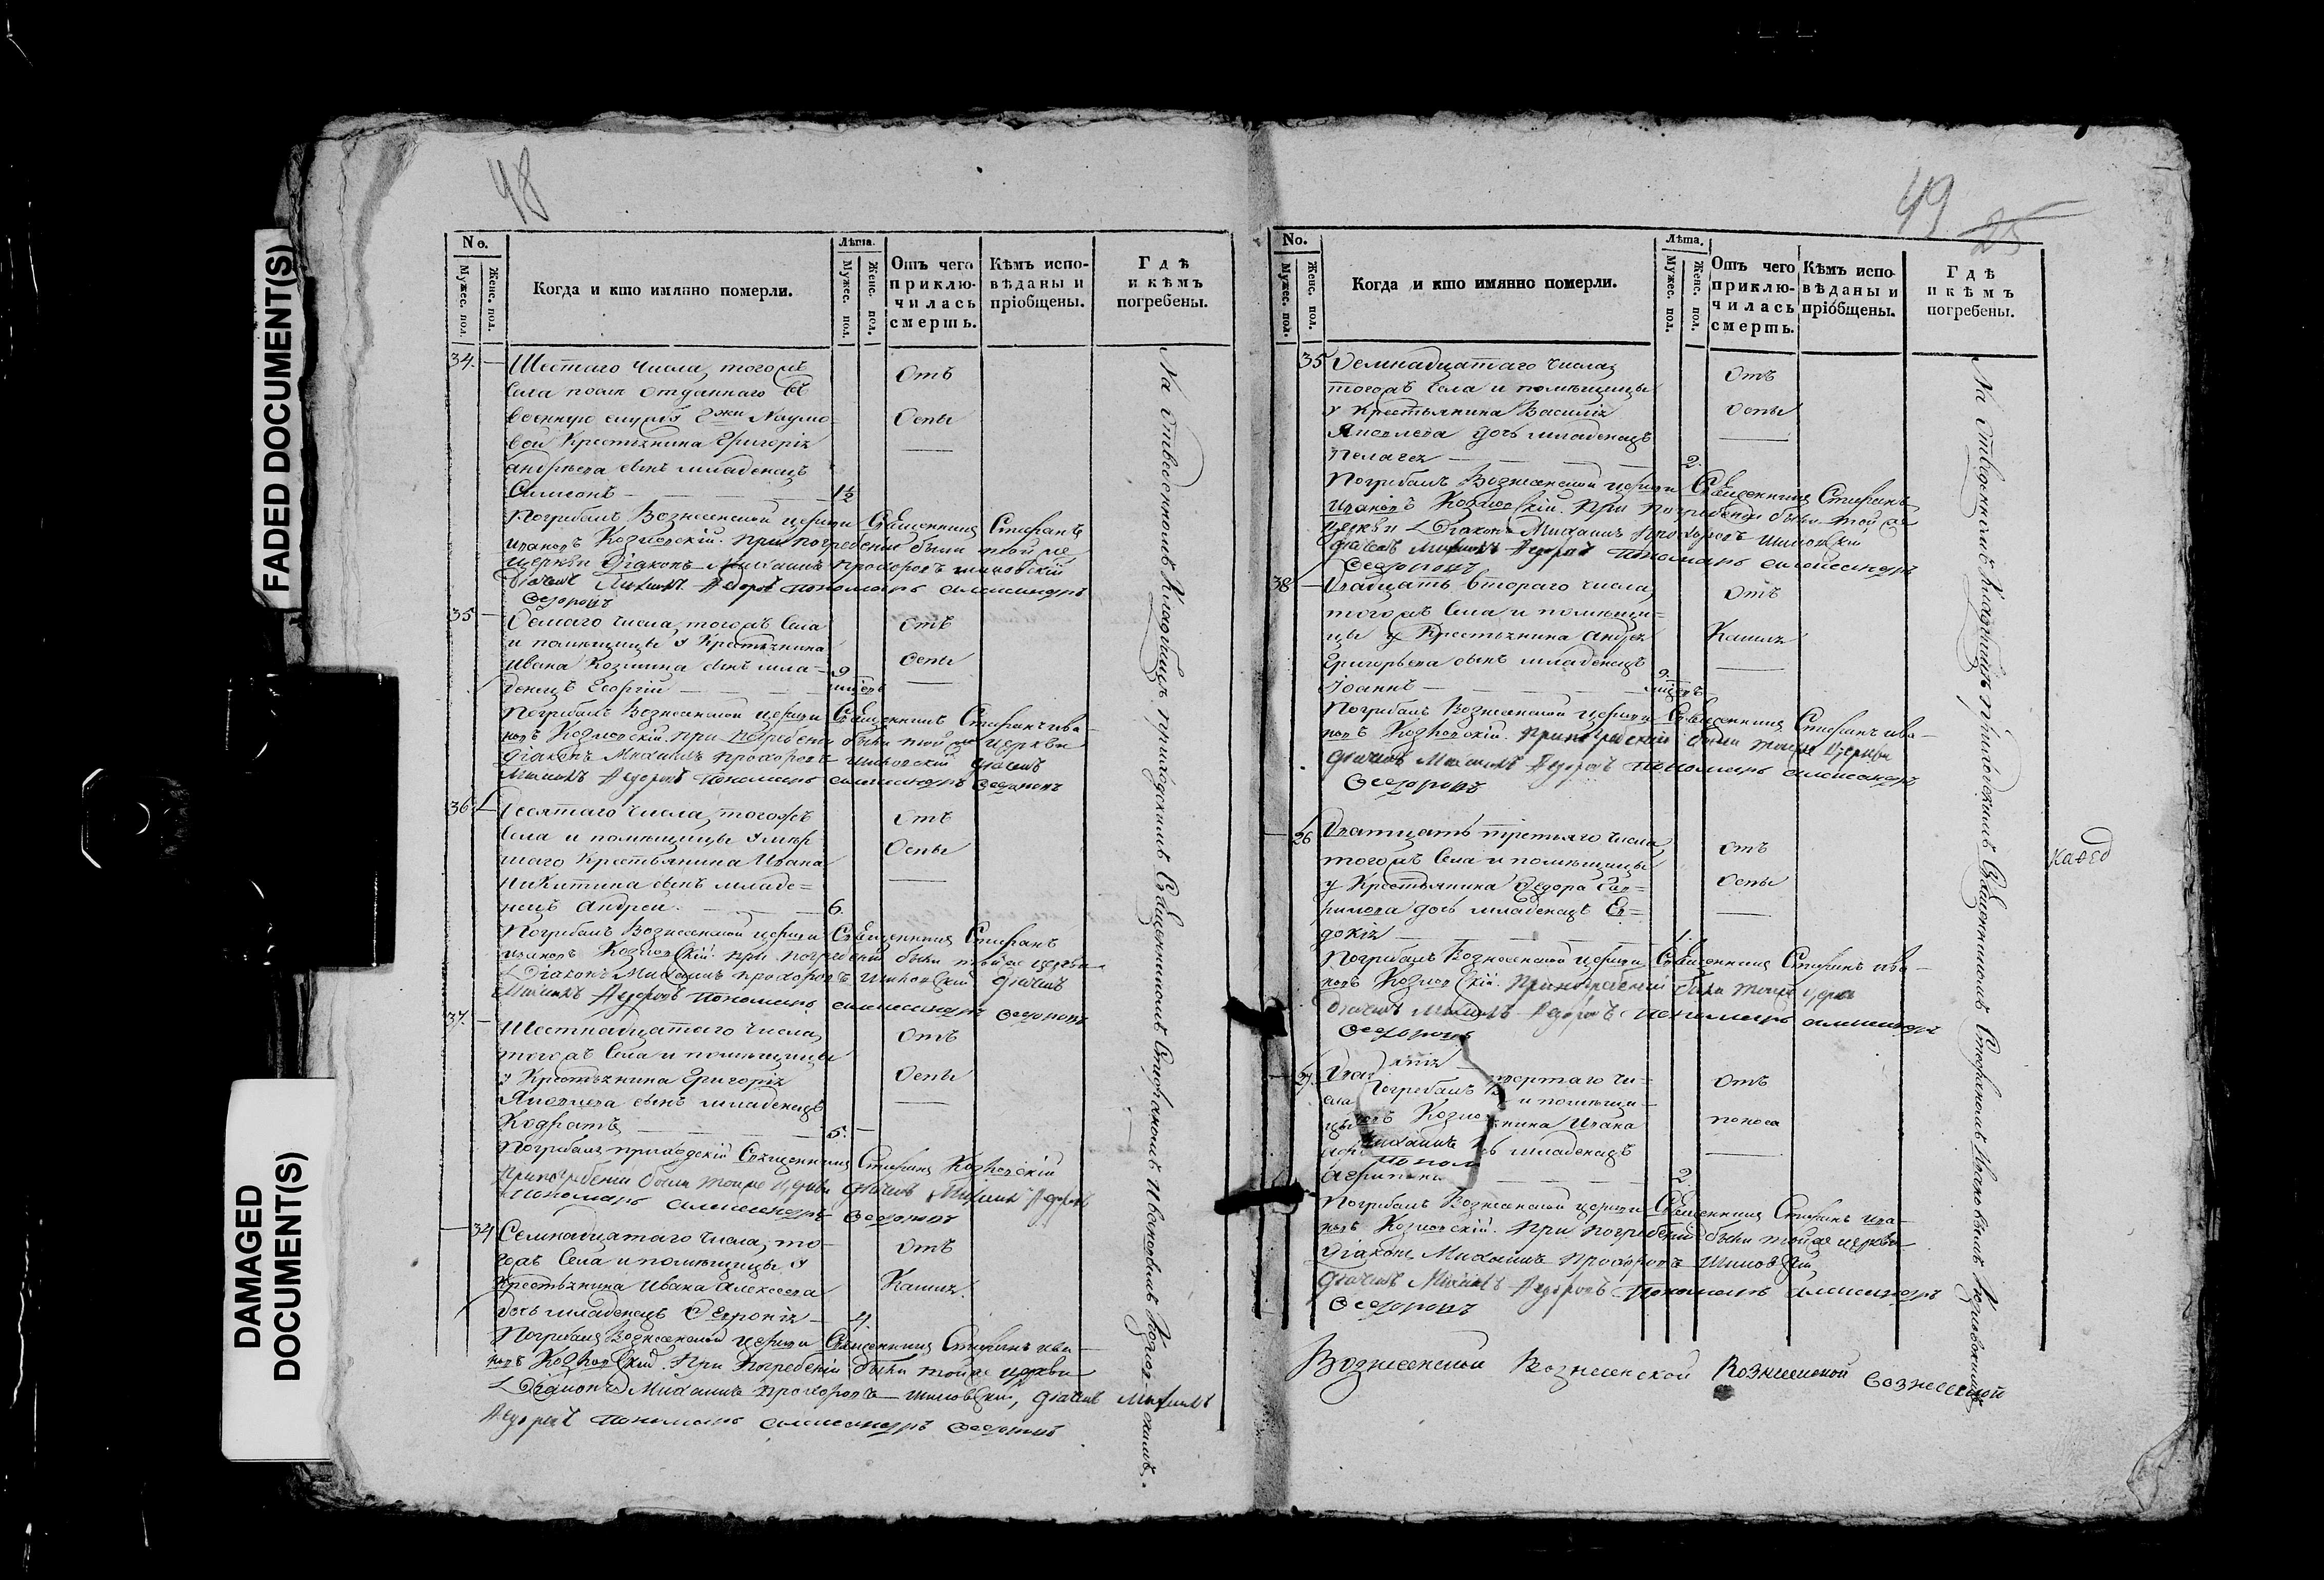 FADED DOCUMENT(S)
DAMAGED
DOCUMENT(S)
48
No.
Мужес. пол.
Женс. пол.
Когда и кто имянно померли.
Лѣта.
Мужес. пол.
Женс. пол.
Отъ чего
приклю-
чилась
смерть.
Кѣмъ испо-
вѣданы и
пріобщены.
Гдѣ
и кѣмъ
погребены.
34.
Шестаго числа, тогожъ
села отданнаго въ
военную Наумо-
вой Крестьянина Григорія
андрѣева сынъ младенецъ
Симеонъ
1½
Отъ
Оспы
Погребалъ Вознесенской церкви Священникъ Стефанъ
ивановъ Козловскій. При погребеніи были той же
церкви Діаконъ Михаилъ прохоровъ шиловскій
дьячекъ Михаилъ Федоровъ пономарь александръ
Федоровъ
35
Седмаго числа, тогожъ села
и помѣщицы у Крестьянина
ивана Козмина сынъ мла-
денецъ Георгій
9
Отъ
Оспы
Погребалъ Вознесенской церкви Священникъ Стефанъ ива-
новъ Козловскій. при погребеніи были той же церкви
діаконъ Михаилъ прохоровъ шиловскій дьячекъ
Михаилъ Федоровъ пономарь александръ Федоровъ
36
Десятаго числа, тогожъ
села и помѣщицы умер
шаго Крестьянина Ивана
Никитина сынъ младе=
нецъ Андрей.
6.
Отъ
Оспы
Погребалъ Вознесенской церкви Священникъ Стефанъ
ивановъ Козловскій. при погребеніи были той же церкви
Діаконъ Михаилъ прохоровъ шиловскій дьячекъ
Михаилъ Федоровъ пономарь александръ Федоровъ
37.
Шестнадцатаго числа,
тогожъ села и помѣщицы
у Крестьянина Григорія
Яковлева сынъ младенецъ
Кодратъ
5.
Отъ
Оспы
Погребалъ приходскій Священникъ Стефанъ Козловскій
При погребеніи были той же церкви дьячекъ Михаилъ Федоровъ
пономарь александръ Федоровъ
34
Семнадцатаго числа, то-
гожъ села и помѣщицы у
крестьянина Ивана Алексеева
дочь младенецъ Феврония
4.
Отъ
Кашля.
Погребалъ Вознесенской церкви Священникъ Стефанъ ива-
новъ Козловскій. При погребеніи были той же церкви
Діаконъ Михаилъ прохоровъ шиловскій, дьячекъ Михаилъ
Федоровъ пономарь александръ Федоровъ
На отведенномъ Кладбищѣ приходскимъ Священникомъ Стефаномъ Ивановымъ Козлов-
скимъ.
49
25
No.
Мужес. пол.
Женс. пол.
Когда и кто имянно померли.
Лѣта.
Мужес. пол.
Женс. пол.
Отъ чего
приклю-
чилась
смерть.
Кѣмъ испо-
вѣданы и
пріобщены.
Гдѣ
и кѣмъ
погребены.
35
числа,
тогожъ села и помѣщицы
у Крестьянина Василія
Яковлева дочь младенецъ
Пелагея
2.
Отъ
Оспы
Погребалъ Вознесенской церкви Священникъ Стефанъ
ивановъ Козловскій. При погребеніи были той же
церкви Діаконъ Михаилъ прохоровъ Шиловскій
дьячекъ Михаилъ Федоровъ пономарь александръ
Федоровъ
38
Двадцать втораго числа,
тогожъ села и помѣщи=
цы у Крестьянина андрея
Григорьева сынъ младенецъ
Іоаннъ
9.
Отъ
Кашля
Погребалъ Вознесенской церкви Священникъ Стефанъ ива-
новъ Козловскій. При погребеніи были той же церкви
дьячекъ Михаилъ Федоровъ пономарь александръ
Федоровъ
26
Дватцать третьяго числа,
тогожъ села и помѣщицы
у Крестьянина Федора
дочь младенецъ Ев=
докія
1.
Отъ
Оспы
Погребалъ Вознесенской церкви Священникъ Стефанъ ива-
новъ Козловскій. При погребеніи были той же церкви
дьячекъ Михаилъ Федоровъ пономарь александръ
Федоровъ
27.
вертаго чи=
сла и помѣщи-
цы нина Ивана
младенецъ
Агрипина
2.
Отъ
поноса
Погребалъ Вознесенской церкви Священникъ Стефанъ ива-
новъ Козловскій. При погребеніи были той же церкви
діаконъ Михаилъ прохоровъ Шиловскій
дьячекъ Михаилъ Федоровъ пономарь александръ
Федоровъ
На отведенномъ Кладбищѣ приходскимъ Священникомъ Стефаномъ Ивановымъ Козловскимъ
Вознесенской Вознесенской Вознесенской Вознесенской